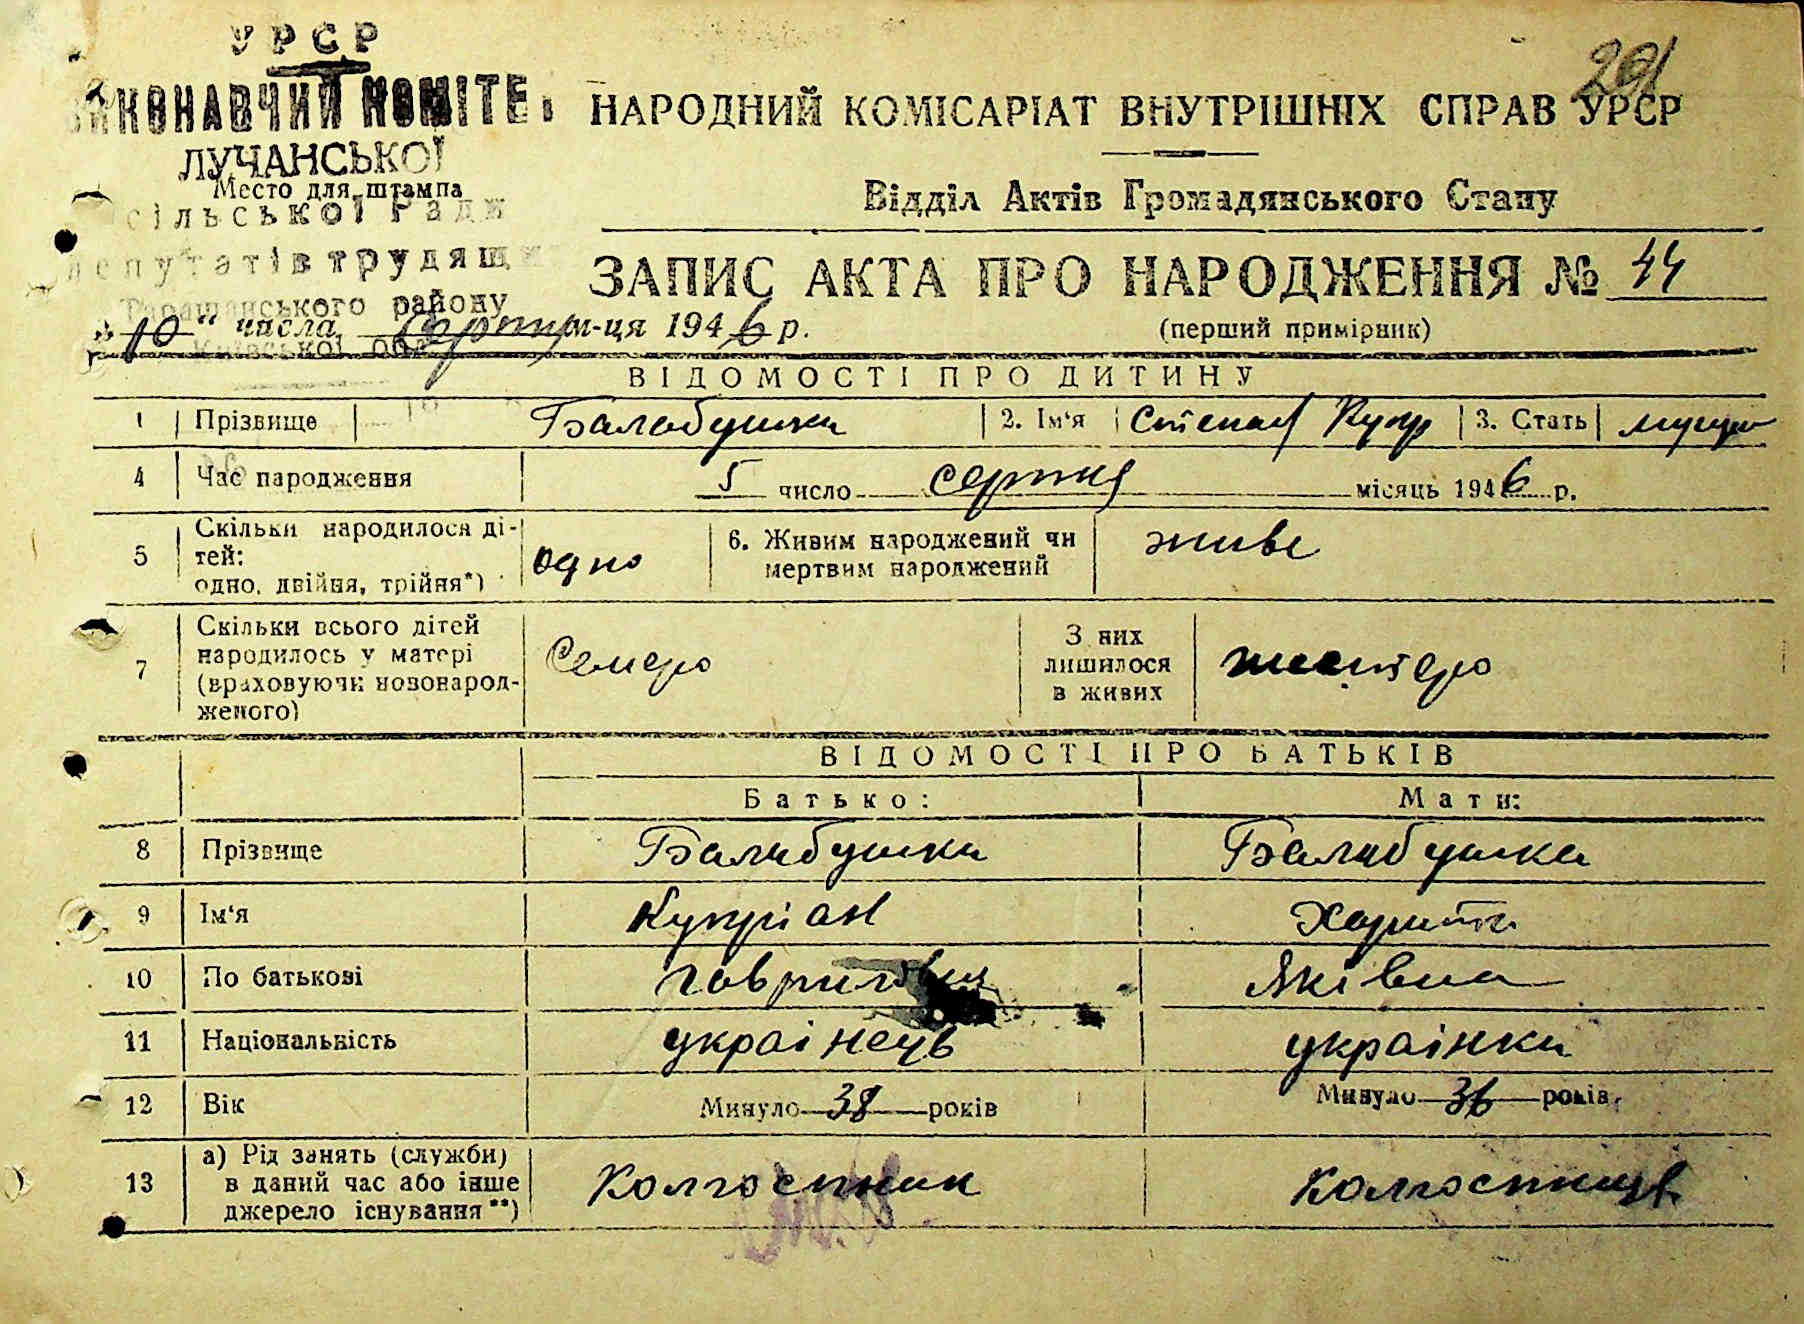 УРСР
ВИКОНАВЧИЙ КОМІТЕТ
ЛУЧАНСЬКОЇ
Место для штампа
сільської Ради
депутатів трудящи
Таращанського району
Київської обл
291
НАРОДНИЙ КОМІСАРІАТ ВНУТРІШНІХ СПРАВ УРСР
Відділ Актів Громадянського Стану
ЗАПИС АКТА ПРО НАРОДЖЕННЯ № 44
„10“ числа серпня м-ця 1946 р.
(перший примірник)
ВІДОМОСТІ ПРО ДИТИНУ
1 Прізвище Балабушка 2. Ім'я Степан Купр 3. Стать
4 Час народження 5 число серпня місяць 1946 р.
5 Скільки народилося ді-
тей:
одно, двійня, трійня*) одно
6. Живим народжений чи
мертвим народжений живе
7 Скільки всього дітей
народилось у матері
(враховуючи новонарод-
женого) Семеро
З них
лишилося
в живих шестеро
ВІДОМОСТІ ПРО БАТЬКІВ
Батько: Мати:
8 Прізвище Балабушка Балабушка
9 Ім'я Купріан Харитя
10 По батькові Гаврилович Яківна
11 Національність українець українка
12 Вік Минуло 38 років Минуло 36 років
13 а) Рід занять (служби)
в даний час або інше
джерело існування**) Колгоспник Колгоспниця